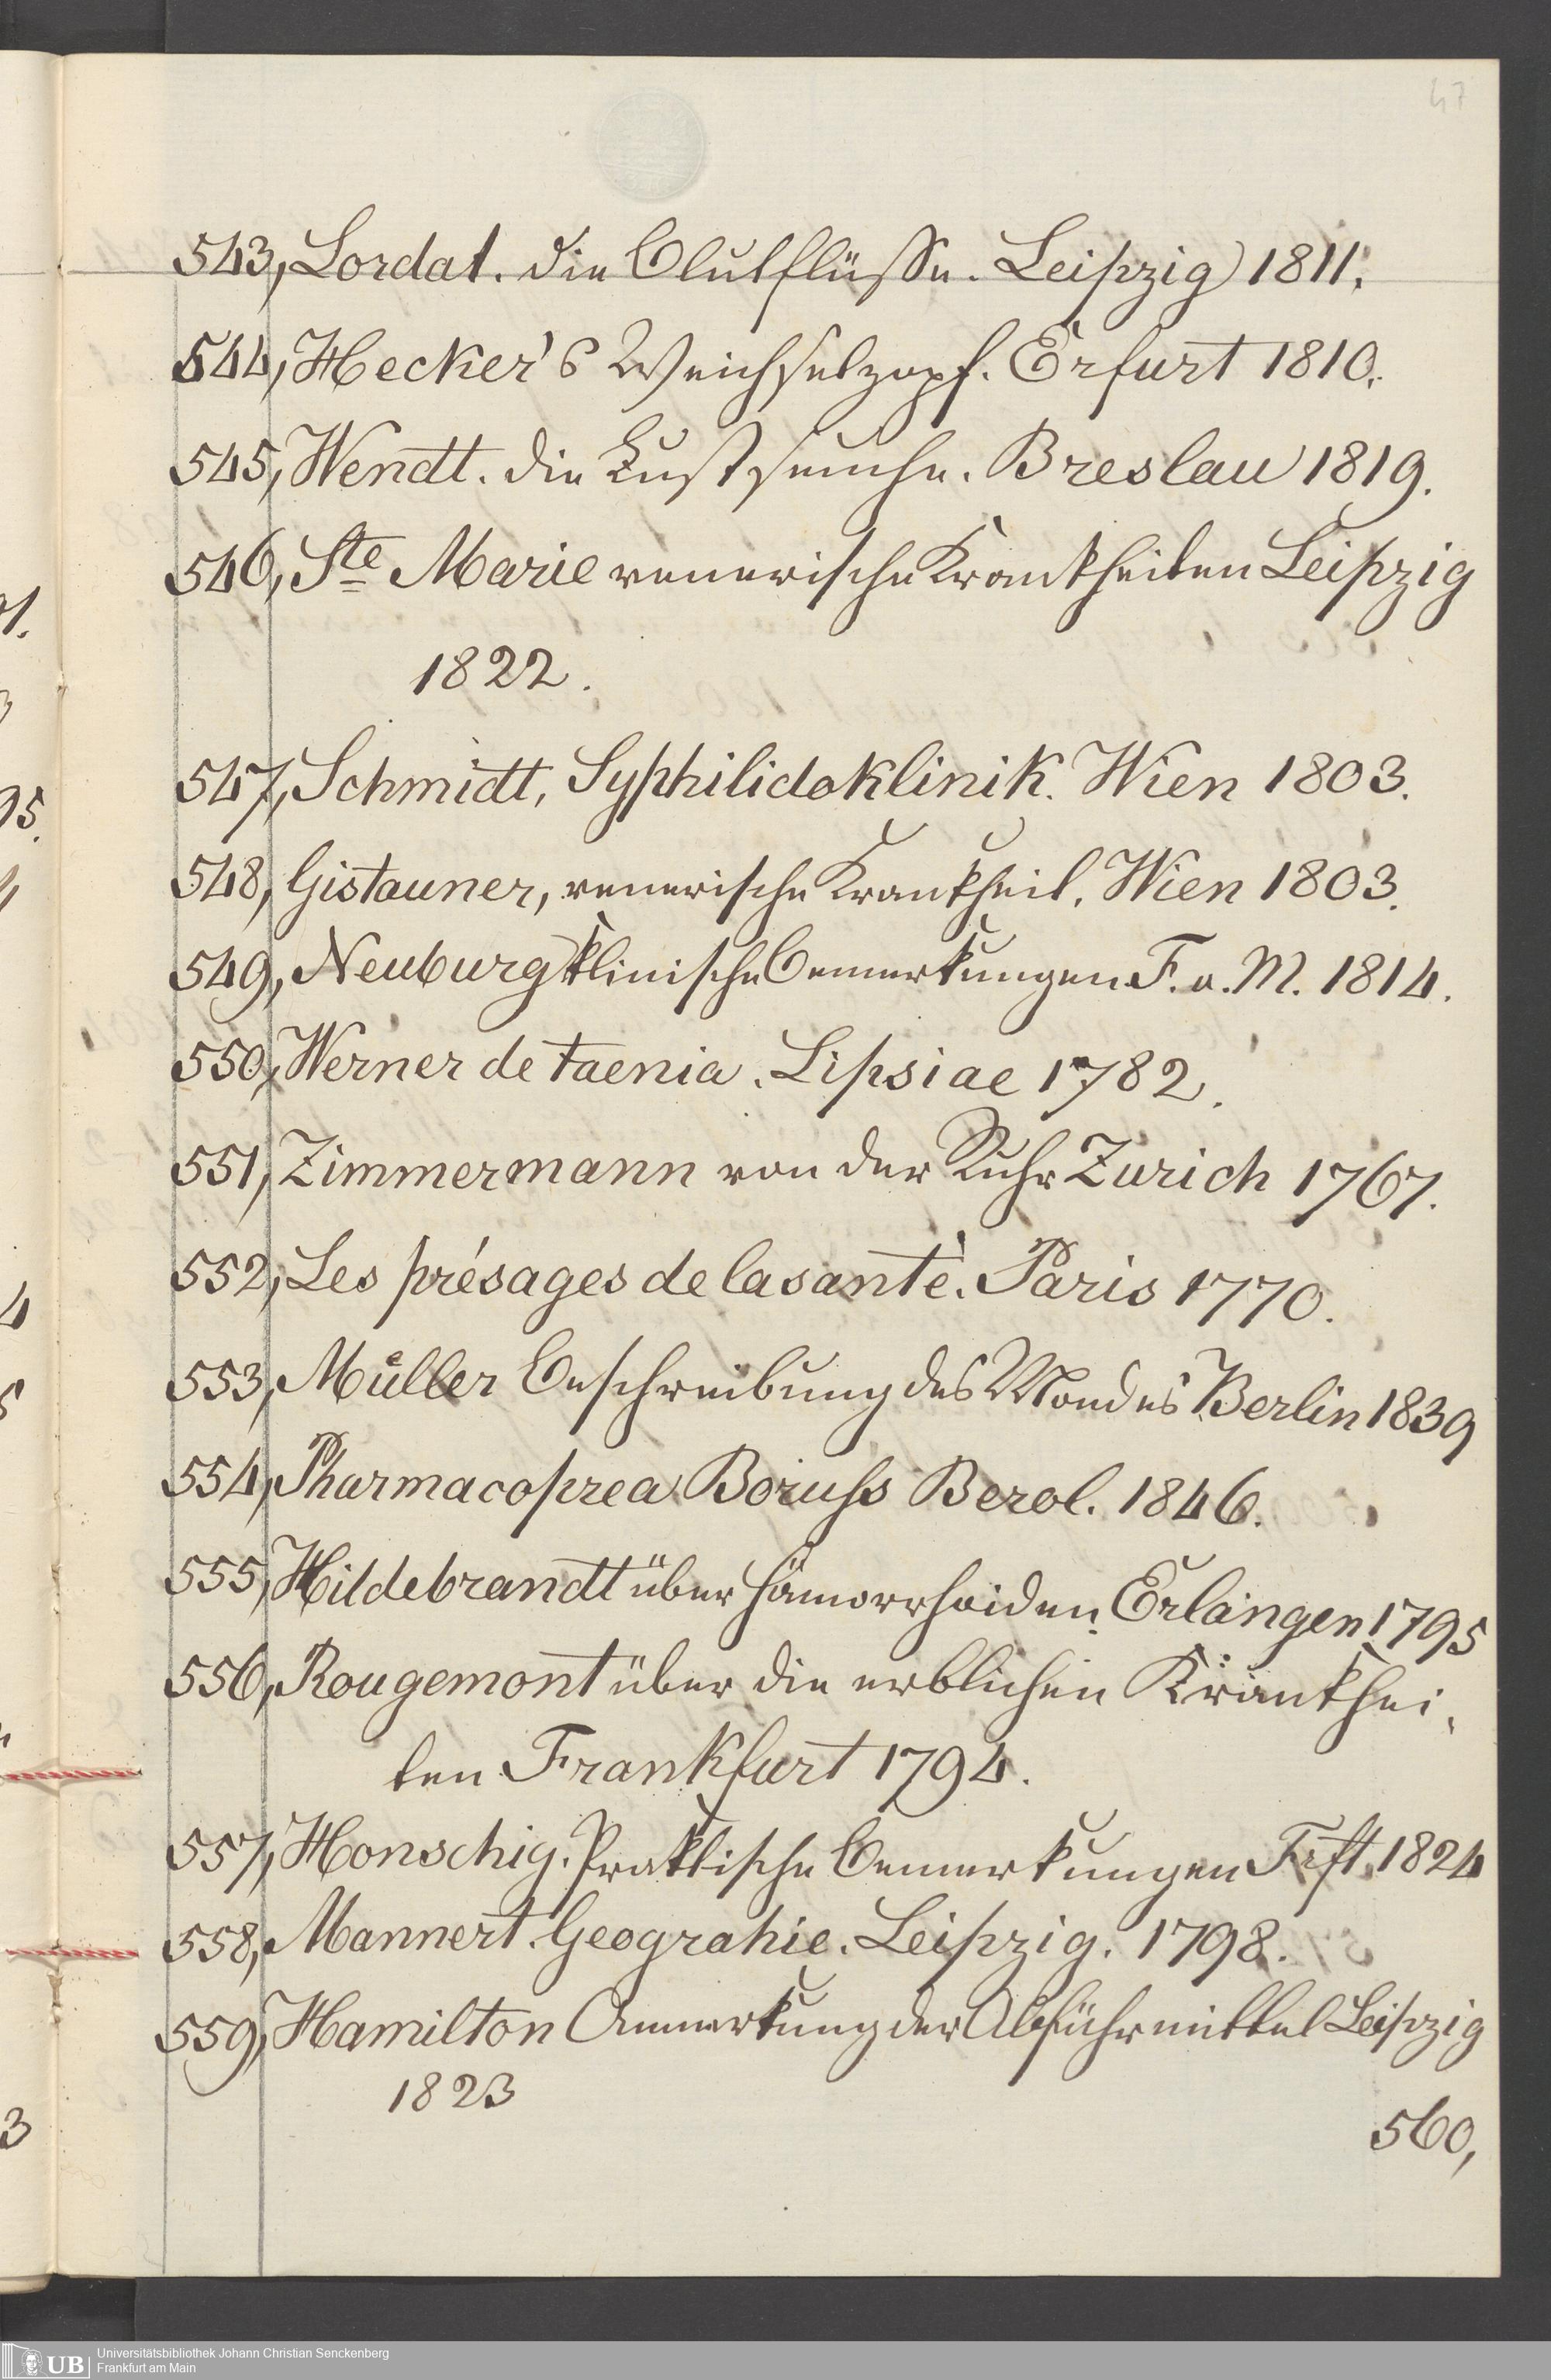 47
543, Lordat. die Blutflüsse. Leipzig 1811.
544, Hecker's Weichselzopf. Erfurt 1810.
545, Wendt. die Lustseuche. Breslau 1819.
546, Ste Marie venerische Krankheiten Leipzig
1822.
547, Schmidt, Syphilidoklinik. Wien 1803.
548, Gistauner, venerische Krankheit. Wien 1803.
549, Neuburg klinische Bemerkungen F. a. M. 1814.
550, Werner de taenia. Lipsiae 1782.
551, Zimmermann von der Ruhr Zurich 1767.
552, Les présages de la santè. Paris 1770.
553, Müller Beschreibung des Mondes Berlin 1839
554, Pharmacoprea Boruss Berol. 1846.
555, Hildebrandt über Hämorrhoiden. Erlangen 1795
556, Rougemont über die erblichen Krankhei-
ten Frankfurt 1794.
557, Honschig. Praktische Bemerkungen Frft. 1824
558, Mannert. Geograhie. Leipzig. 1798.
559, Hamilton Anmerkung der Abführmittel Leipzig
1823
560,
Universitätsbibliothek Johann Christian Senckenberg
Frankfurt am Main
UB